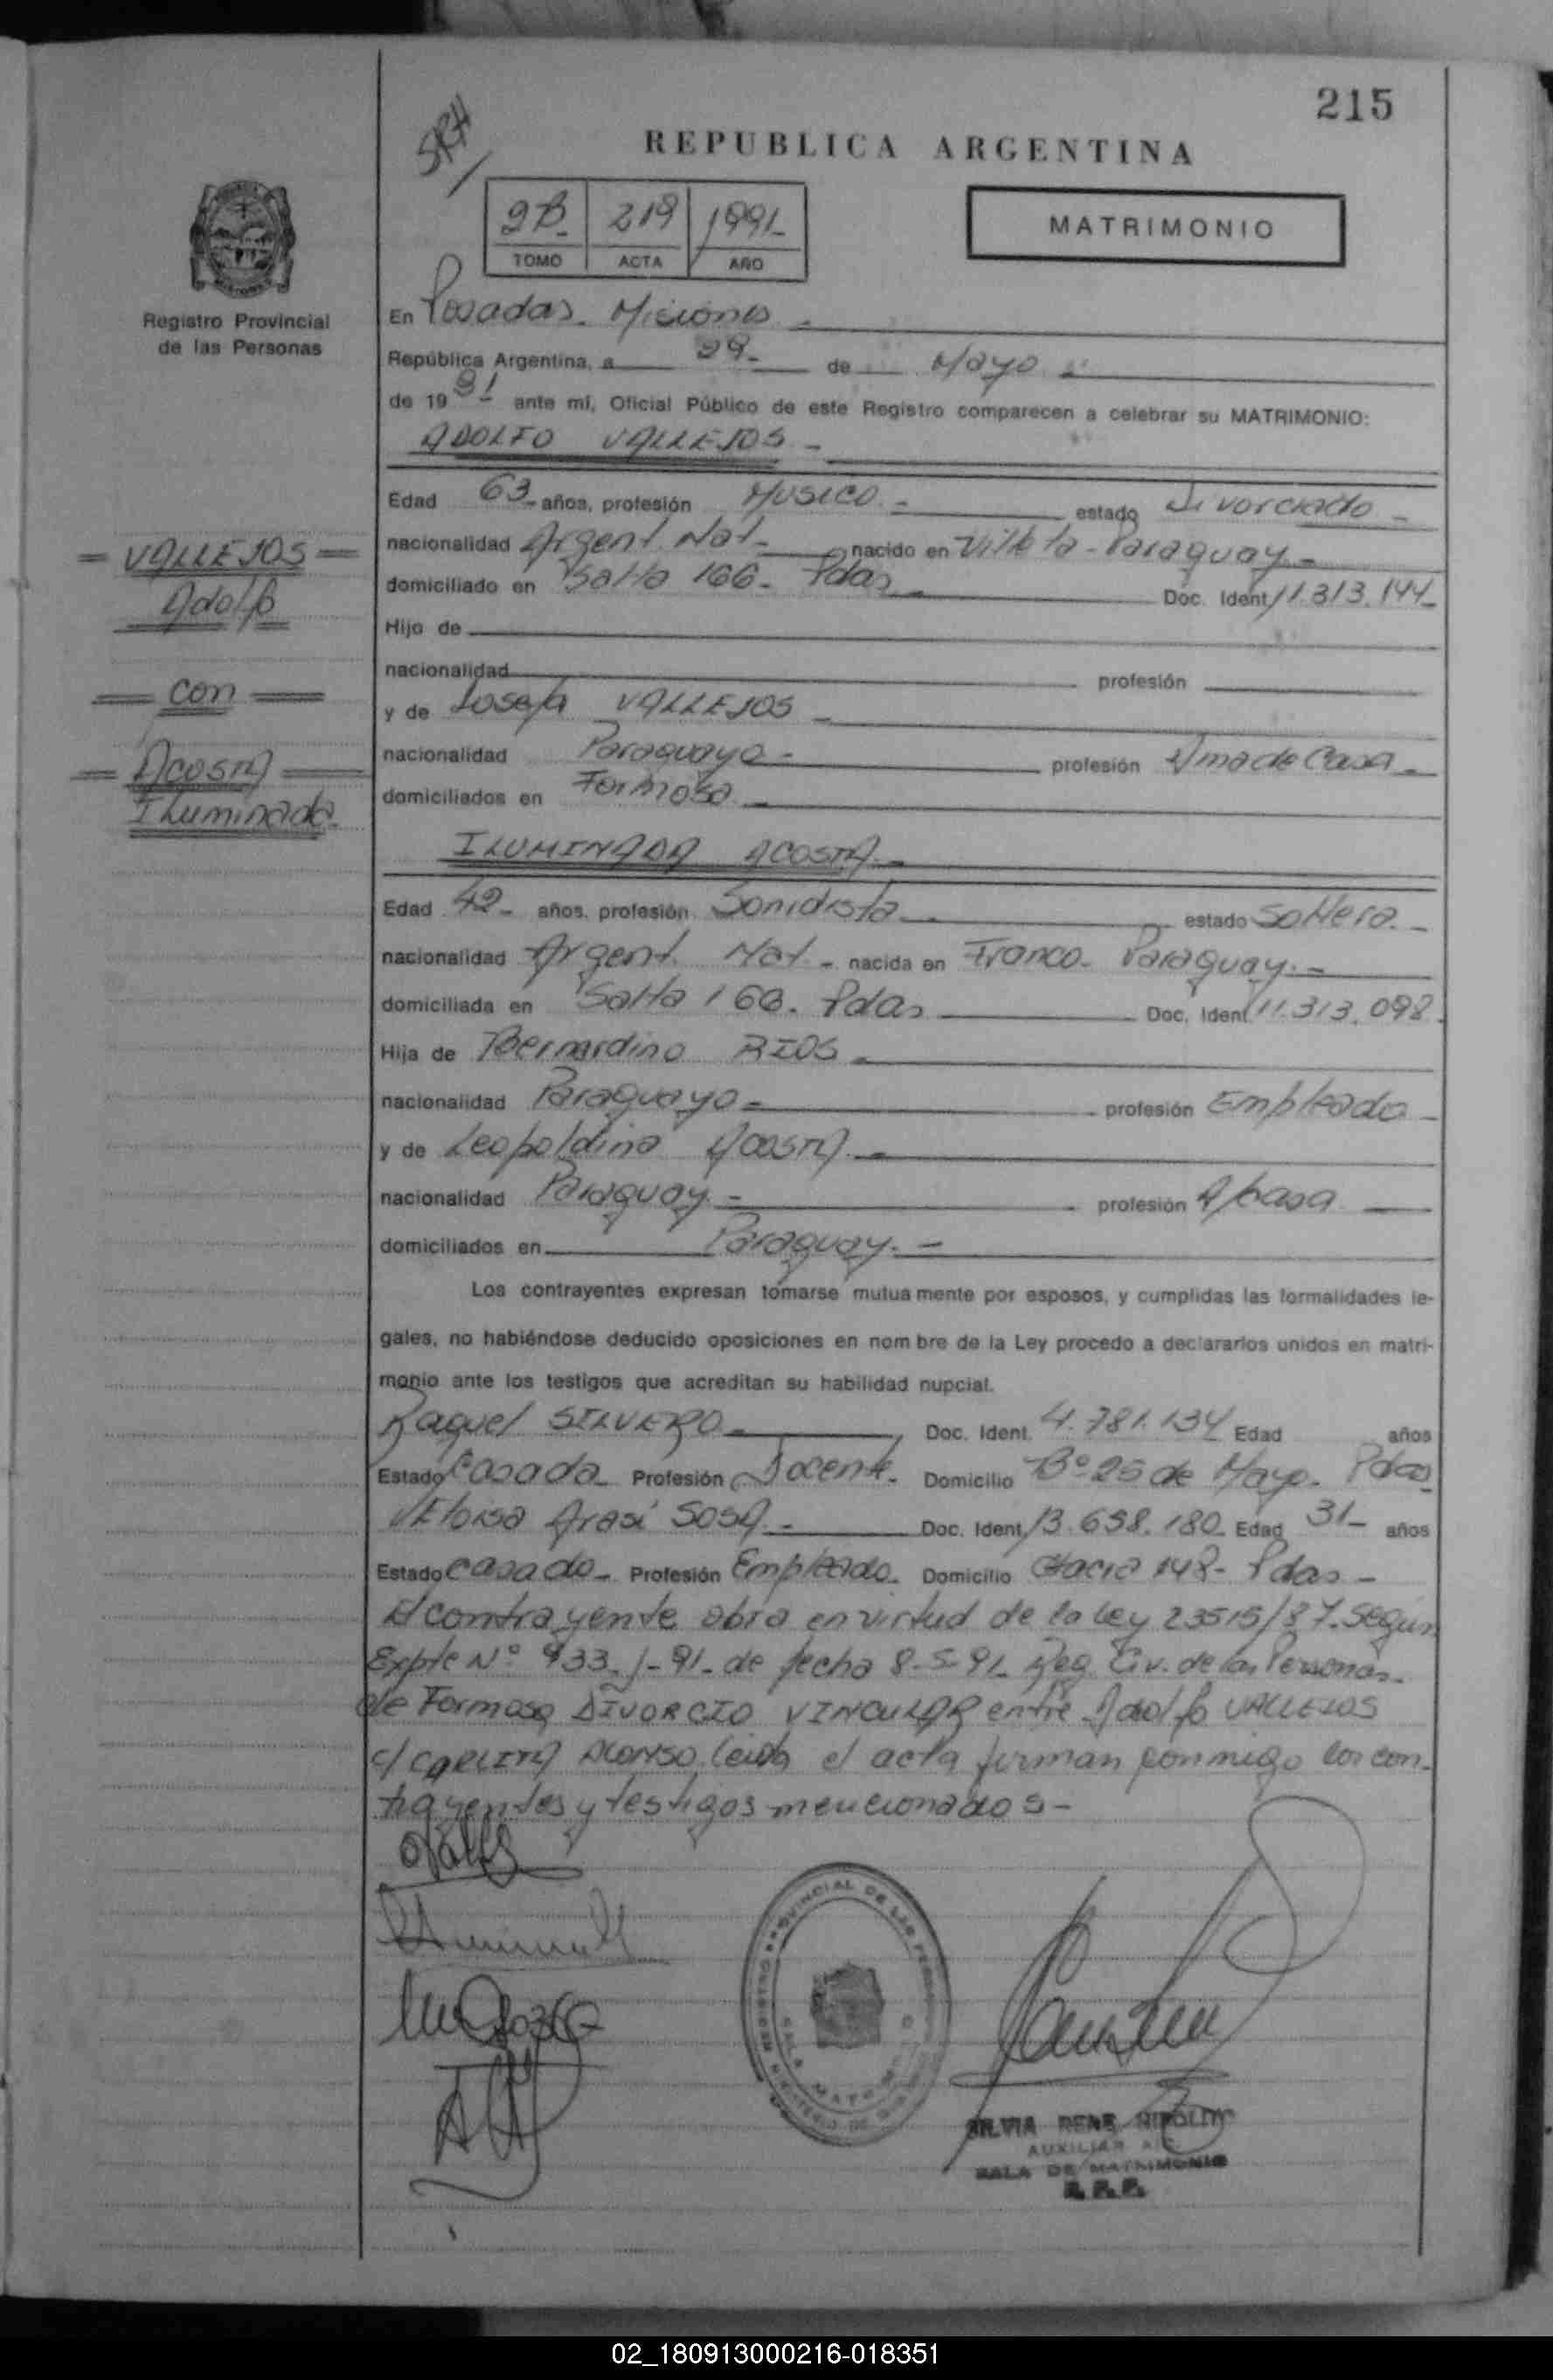 215
REPUBLICA ARGENTINA
2B- 219 1991-
TOMO ACTA AÑO
MATRIMONIO
Registro Provincial
de las Personas
En Posadas. Misiones -
República Argentina, a 29- de Mayo -
de 1991- ante mí, Oficial Público de este Registro comparecen a celebrar su MATRIMONIO:
ADOLFO VALLEJOS -
Edad 63- años, profesión Musico.- estado Divorciado -
nacionalidad Argent. Nat- nacido en Villeta - Paraguay.-
domiciliado en Salta 166- Pdas - Doc. Ident 11.313.144-
Hijo de
nacionalidad profesión
y de Josefa VALLEJOS -
nacionalidad Paraguaya - profesión Ama de Casa -
domiciliados en Formosa -
= VALLEJOS =
Adolfo
= con =
= Acosta =
Iluminada.
ILUMINADA ACOSTA.-
Edad 42- años, profesión Sonidista - estado Soltera.-
nacionalidad Argent. Nat - nacida en Franco - Paraguay.-
domiciliada en Salta 166. Pdas Doc. Ident. 11.313.098.
Hija de Bernardino RIOS -
nacionalidad Paraguayo - profesión Empleado -
y de Leopoldina ACOSTA.-
nacionalidad Paraguay.- profesión A/casa
domiciliados en Paraguay.-
Los contrayentes expresan tomarse mutua mente por esposos, y cumplidas las formalidades le-
gales, no habiéndose deducido oposiciones en nom bre de la Ley procedo a declararlos unidos en matri-
monio ante los testigos que acreditan su habilidad nupcial.
Raquel SILVERO - Doc. Ident. 4.781.134 Edad años
Estado Casada - Profesión Docente. Domicilio Bº 25 de Mayo - Pdas
Eloisa Arasí SOSA - Doc. Ident. 13.658.180 Edad 31- años
Estado casado - Profesión Empleado - Domicilio 148 - Pdas -
El contrayente obra en virtud de la ley 23515/87. Según
Expte Nº 933-J-91- de fecha 8-5-91- Reg. Civ. de las Personas
de Formosa DIVORCIO VINCULAR entre Adolfo VALLEJOS
c/ CARLITA ALONSO. Leida el acta firman conmigo los con-
trayentes y testigos mencionados -
REGISTRO PROVINCIAL DE LAS PERSONAS
SILVIA RENE NIPOLITO
AUXILIAR
SALA DE MATRIMONIO
R. P. P.
02_180913000216-018351